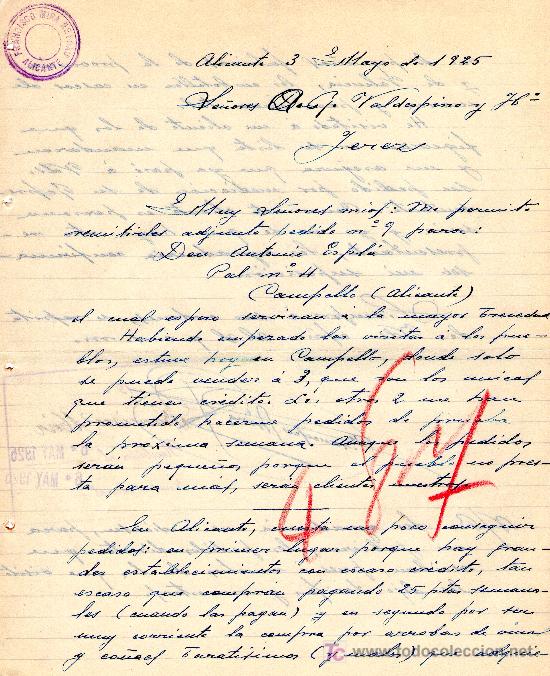 FRANCISCO MIRA
ALICANTE
Alicante 3 Mayo de 1925
Señores Valdespino y Hº
Jerez
Muy Señores mios: Me permito
remitirles adjunto pedido nº 9 para:
Don Antonio Esplá
Pal nº 4
Campello (Alicante)
el cual espero serviran a la mayor brevedad
Habiendo empezado las visitas á los pue-
blos, estuve hoy en Campello, donde solo
se puede vender á 3, que son los unicos
que tienen crédito. Los otros 2 me han
prometido hacerme pedidos de prueba
la próxima semana. Aunque los pedidos
serán pequeños porque el pueblo no pres-
ta para mas, seran clientes nuestros
487
En Alicante, cuesta un poco conseguir
pedidos: en primer lugar porque hay gran-
des establecimientos con escaso crédito, tan
escaso que compran pagando 25 ptas semana-
les (cuando las pagan) y en segundo por ser
muy corriente la compra por arrobas de vinos
y coñacs baratísimos (y malos)
MAY 1925
todocoleccion.net